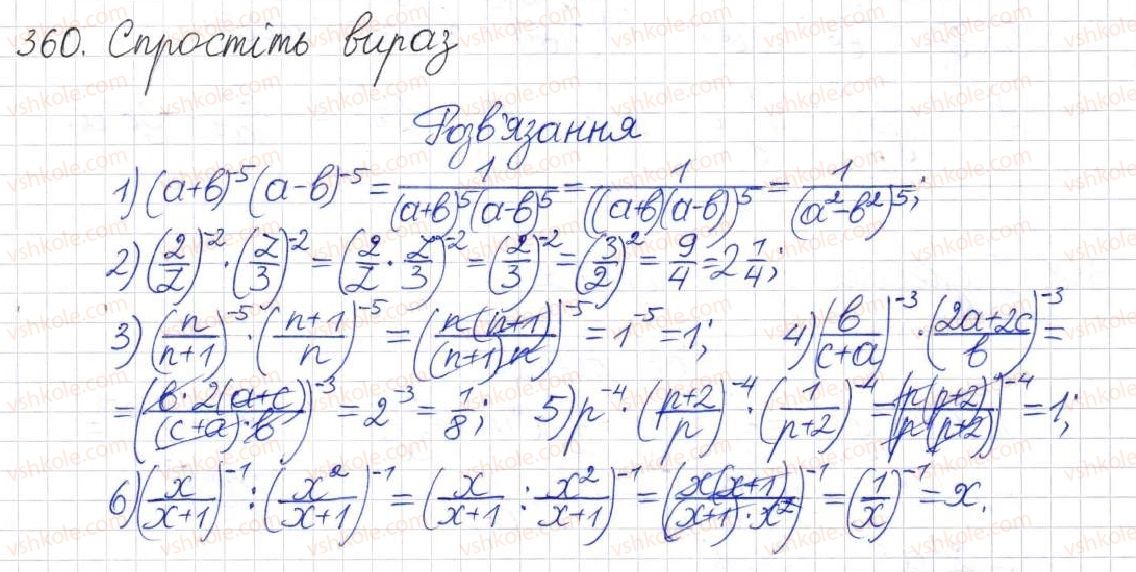 360. Спростіть вираз
Розв'язання
1) (a+b)^-5 (a-b)^-5 = 1/((a+b)^5 (a-b)^5) = 1/((a+b)(a-b))^5 = 1/(a^2-b^2)^5;
2) (2/7)^-2 · (7/3)^-2 = (2/7 · 7/3)^-2 = (2/3)^-2 = (3/2)^2 = 9/4 = 2 1/4;
3) (n/(n+1))^-5 · ((n+1)/n)^-5 = (n(n+1)/((n+1)n))^-5 = 1^-5 = 1; 4) (b/(c+a))^-3 · ((2a+2c)/b)^-3 =
= (b·2(a+c)/((c+a)·b))^-3 = 2^-3 = 1/8; 5) p^-4 · ((p+2)/p)^-4 · (1/(p+2))^-4 = (p(p+2)/(p(p+2)))^-4 = 1;
6) (x/(x+1))^-1 : (x^2/(x+1))^-1 = (x/(x+1) : x^2/(x+1))^-1 = (x(x+1)/((x+1)·x^2))^-1 = (1/x)^-1 = x.
vshkole.com